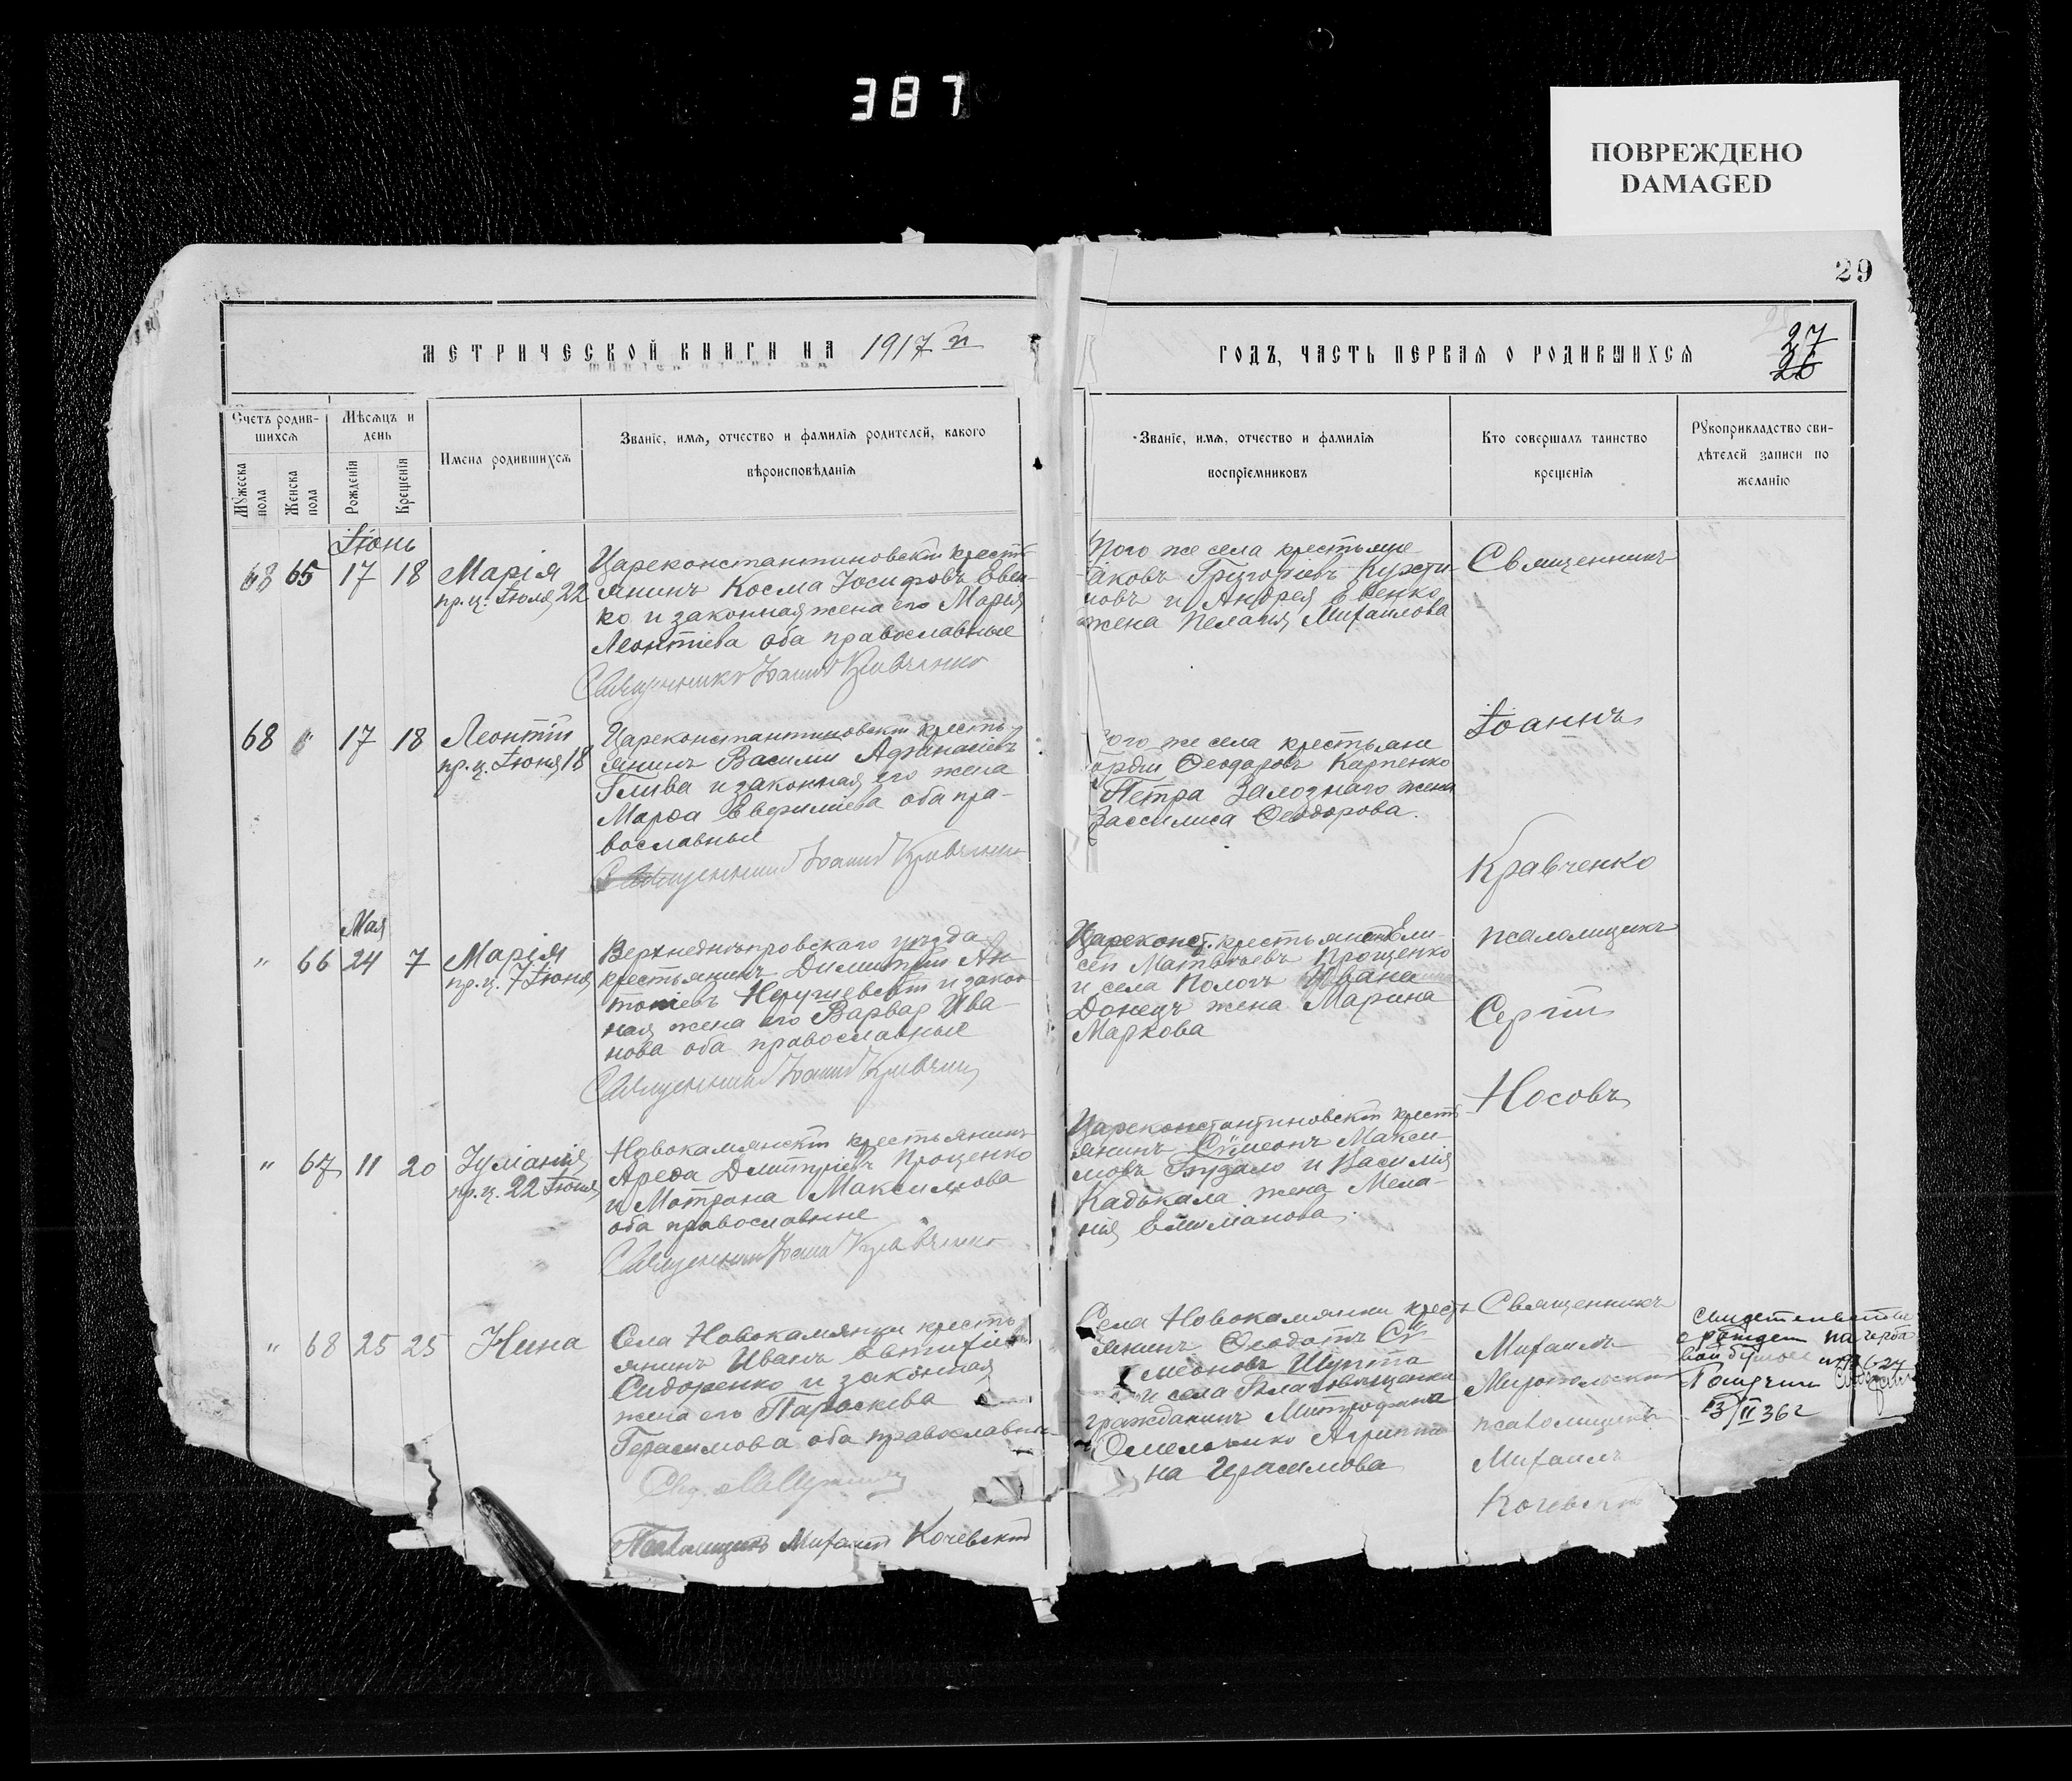 387
ПОВРЕЖДЕНО
DAMAGED
29
МЕТРИЧЕСКОЙ КНИГИ НА 1917 г
ГОДЪ, ЧАСТЬ ПЕРВАЯ О РОДИВШИХСЯ
27
26
Счетъ родив-
шихся
Мужеска пола
Женска пола
Мѣсяцъ и
день
Рожденія
Крещенія
Имена родившихся
Званіе, имя, отчество и фамилія родителей, какого
вѣроисповѣданія
Званіе, имя, отчество и фамилія
воспріемниковъ
Кто совершалъ таинство
крещенія
Рукоприкладство сви-
дѣтелей записи по
желанію
Іюнь
68 65 17 18 Марія
пр.ц. Іюля 22
Цареконстантиновскій кресть-
янинъ Косма Іосифовъ Евен-
ко и законная жена его Марія
Леонтіева оба православные
Священникъ Іоаннъ Кравченко
Того же села крестьяне
Іаковъ Григоріевъ
и Андрея Евенко
жена Пелагія Михаилова
Священникъ
68 " 17 18 Леонтій
пр.ц. Іюня 18
Цареконстантиновскій кресть-
янинъ Василій Афанасіевъ
Глива и законная его жена
Марѳа Евфиміева оба пра-
вославные
Священникъ Іоаннъ Кравченко
того же села крестьяне
Ѳеодоровъ Карпенко
Петра Залознаго жена
Вассилиса Ѳеодорова.
Іоаннъ
Кравченко
Мая
" 66 24 7 Марія
пр.ц. 7 Іюня
Верхнеднѣпровскаго уѣзда
крестьянинъ Димитрій Ан-
тоніевъ и закон-
ная жена его Варвар Ива-
нова оба православные
Священникъ Іоаннъ Кравченко
Цареконст. крестьянинъ Ели-
сей Матвѣевъ Прощенко
и села Пологъ Ивана
Донецъ жена Марина
Маркова
псаломщикъ
Сергій
Носовъ
" 67 11 20 Іуліанія
пр.ц. 22 Іюня
Новокамянскій крестьянинъ
Ареѳа Дмитріевъ Проценко
и Мотрона Максимова
оба православные
Священникъ Іоаннъ Кравченко
Цареконстантиновскій кресть-
янинъ Сѵмеонъ Макси-
мовъ и Василія
Кадькала жена Мела-
нія Емиліанова.
" 68 25 25 Нина
Села Новокамянки кресть-
янинъ Иванъ Евтихіевъ
Сидоренко и законная
жена его Параскева
Герасимова оба православные
Псаломщикъ Михаилъ Кочевскій
Села Новокамянки кресть-
янинъ Ѳеодотъ Сѵ-
меоновъ Шупта
и села Благовѣщенки
гражданинъ Митрофана
Омельченко Агриппи-
на Герасимова
Священникъ
Михаилъ
псаломщикъ
Михаилъ
Кочевскій
Свидетельство
о рожден на гербо
вой бумаге
13/II 36г